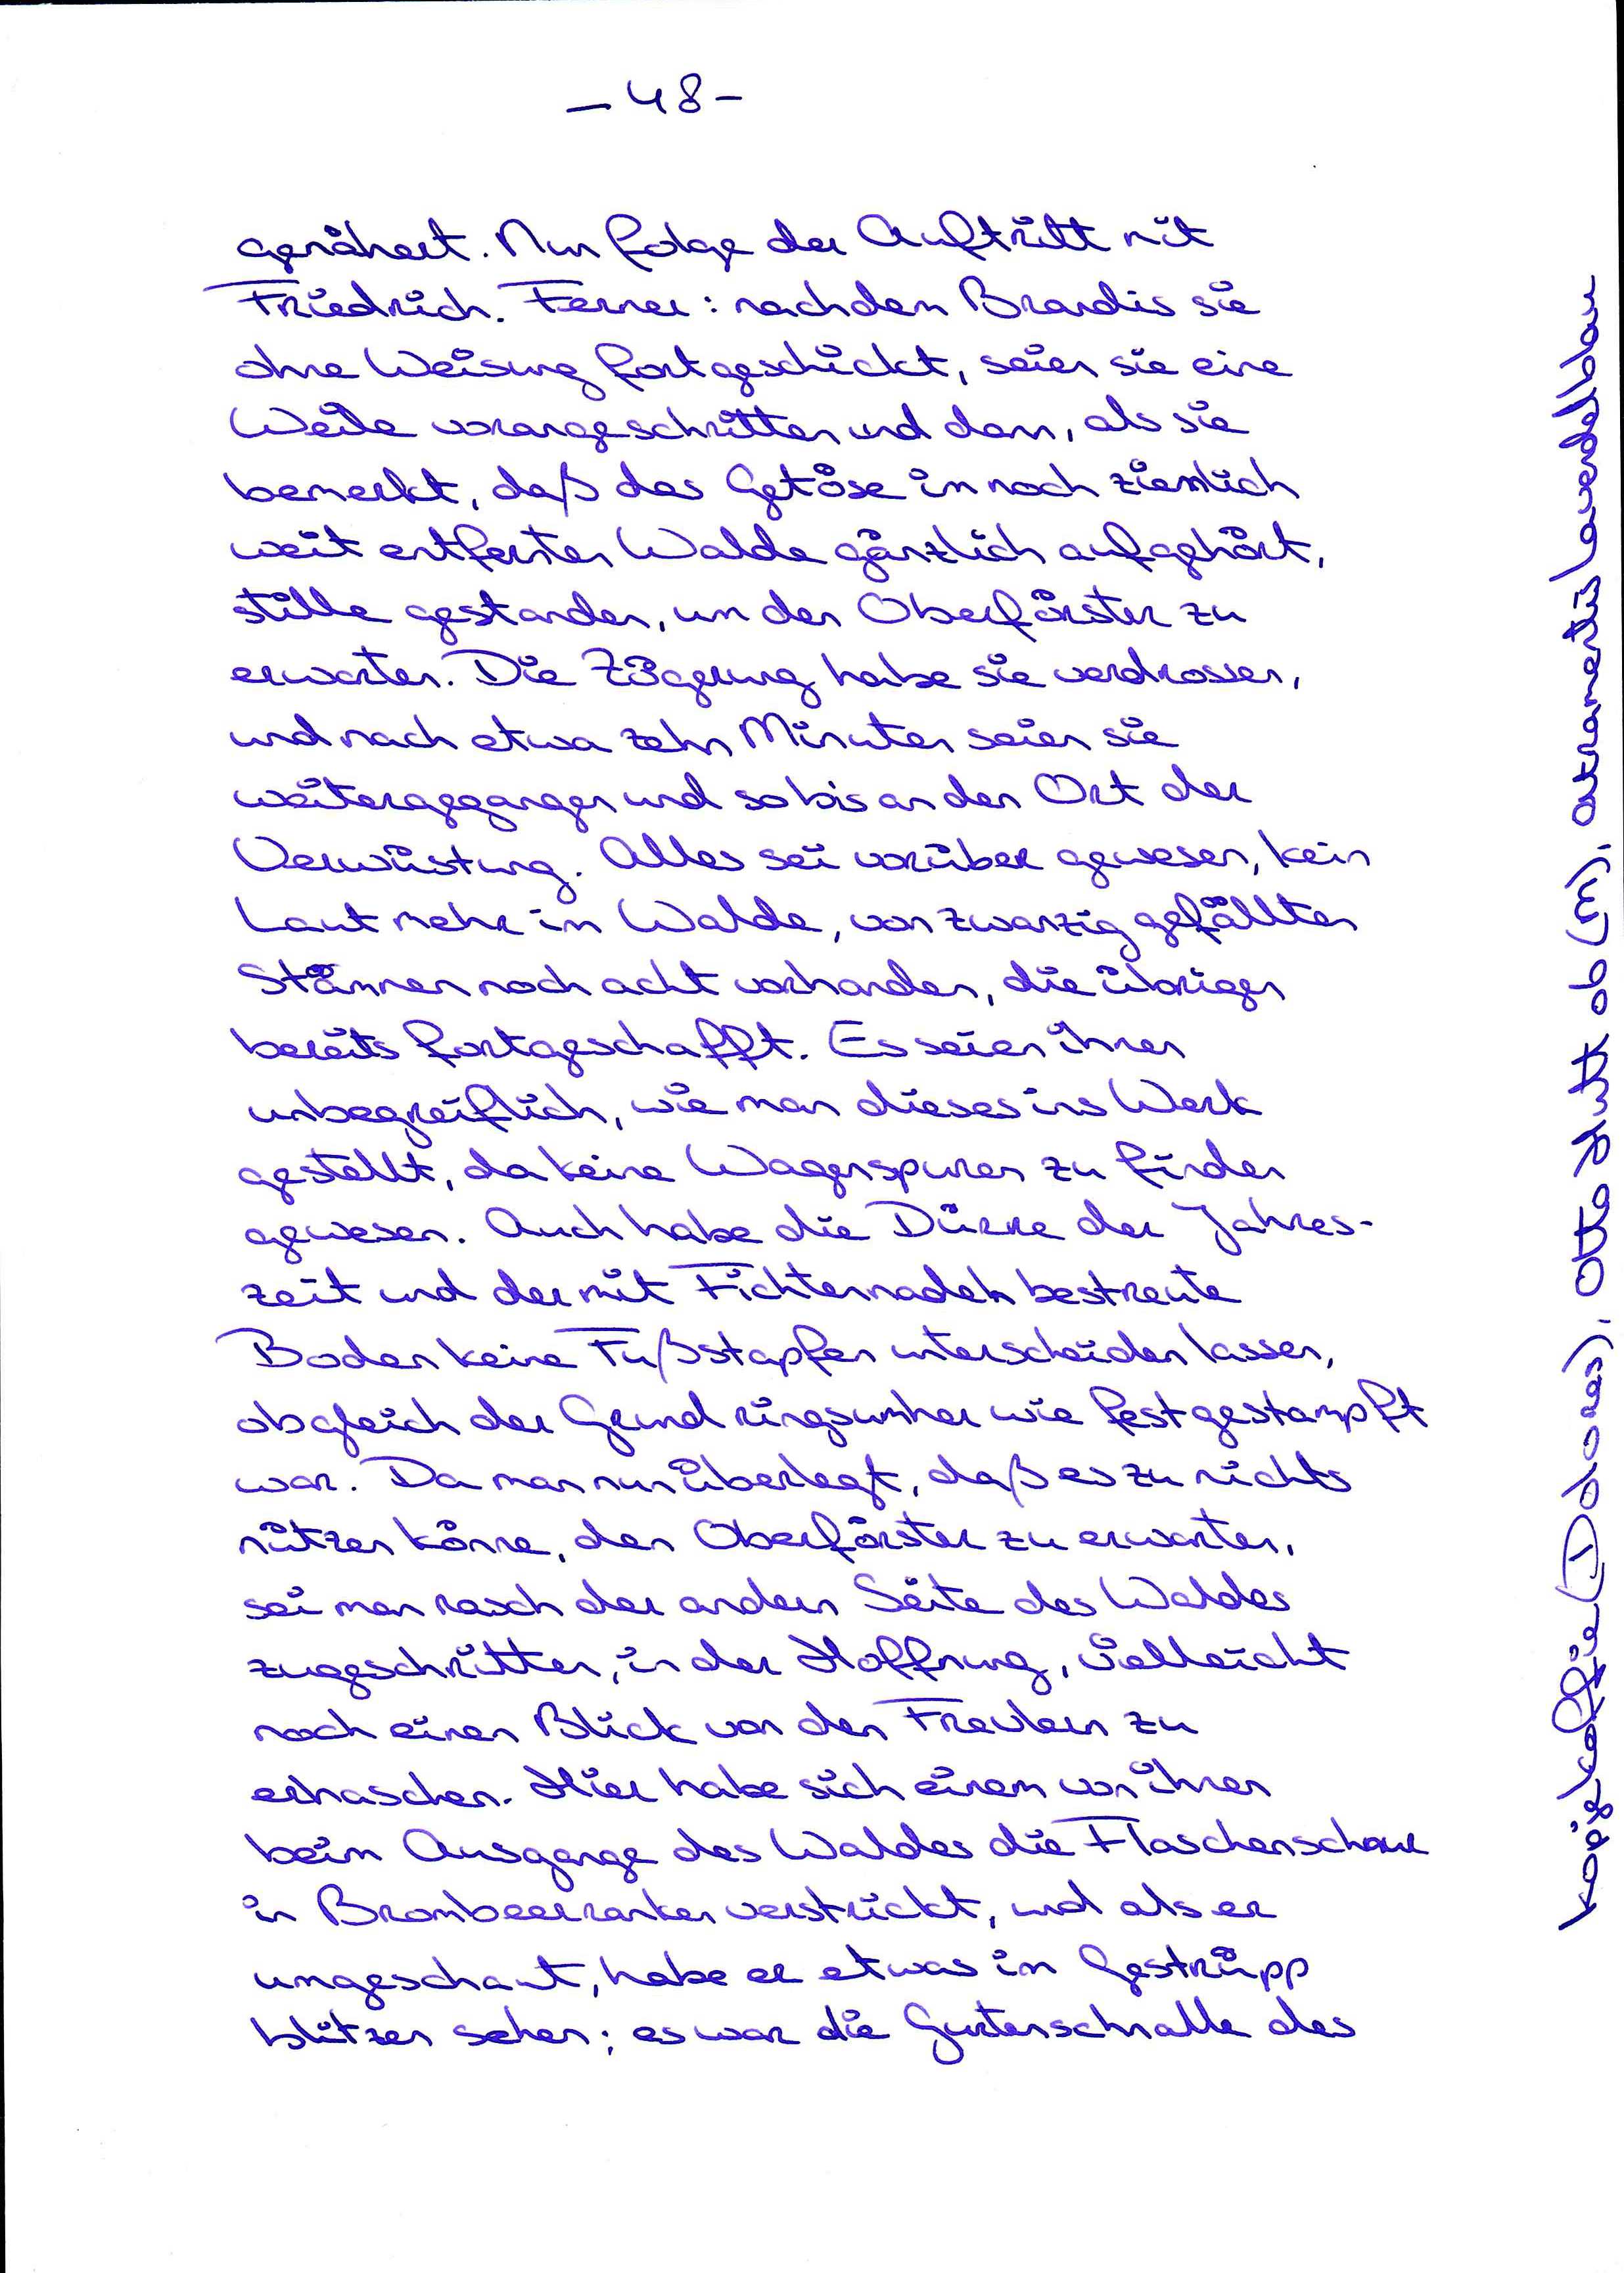 – 48 –
genähert. Nun folge der Auftritt mit
Friedrich. Ferner: nachdem Brandis sie
ohne Weisung fortgeschickt, seien sie eine
Weile vorangeschritten und dann, als sie
bemerkt, daß das Getöse im noch ziemlich
weit entfernten Walde gänzlich aufgehört,
stille gestanden, um den Oberförster zu
erwarten. Die Zögerung habe sie verdrossen,
und nach etwa zehn Minuten seien sie
weitergegangen und so bis an den Ort der
Verwüstung. Alles sei vorüber gewesen, kein
Laut mehr im Walde, von zwanzig gefällten
Stämmen noch acht vorhanden, die übrigen
bereits fortgeschafft. Es seien ihnen
unbegreiflich, wie man dieses ins Werk
gestellt, da keine Wagenspuren zu finden
gewesen. Auch habe die Dürre der Jahres-
zeit und der mit Fichtennadeln bestreute
Boden keine Fußstapfen unterscheiden lassen,
obgleich der Grund ringsumher wie festgestampft
war. Da man nun überlegt, daß es zu nichts
nützen könne, den Oberförster zu erwarten,
sei man rasch der andern Seite des Waldes
zugeschritten, in der Hoffnung, vielleicht
noch einen Blick von den Frevlern zu
erhaschen. Hier habe sich einem von ihnen
beim Ausgange des Waldes die Flaschenschnur
in Brombeerranken verstrickt, und als er
umgeschaut, habe er etwas im Gestrüpp
blitzen sehen; es war die Gurtenschnalle des
(Ddores), Otto Hutt ob (m), atramentis lavendelblau